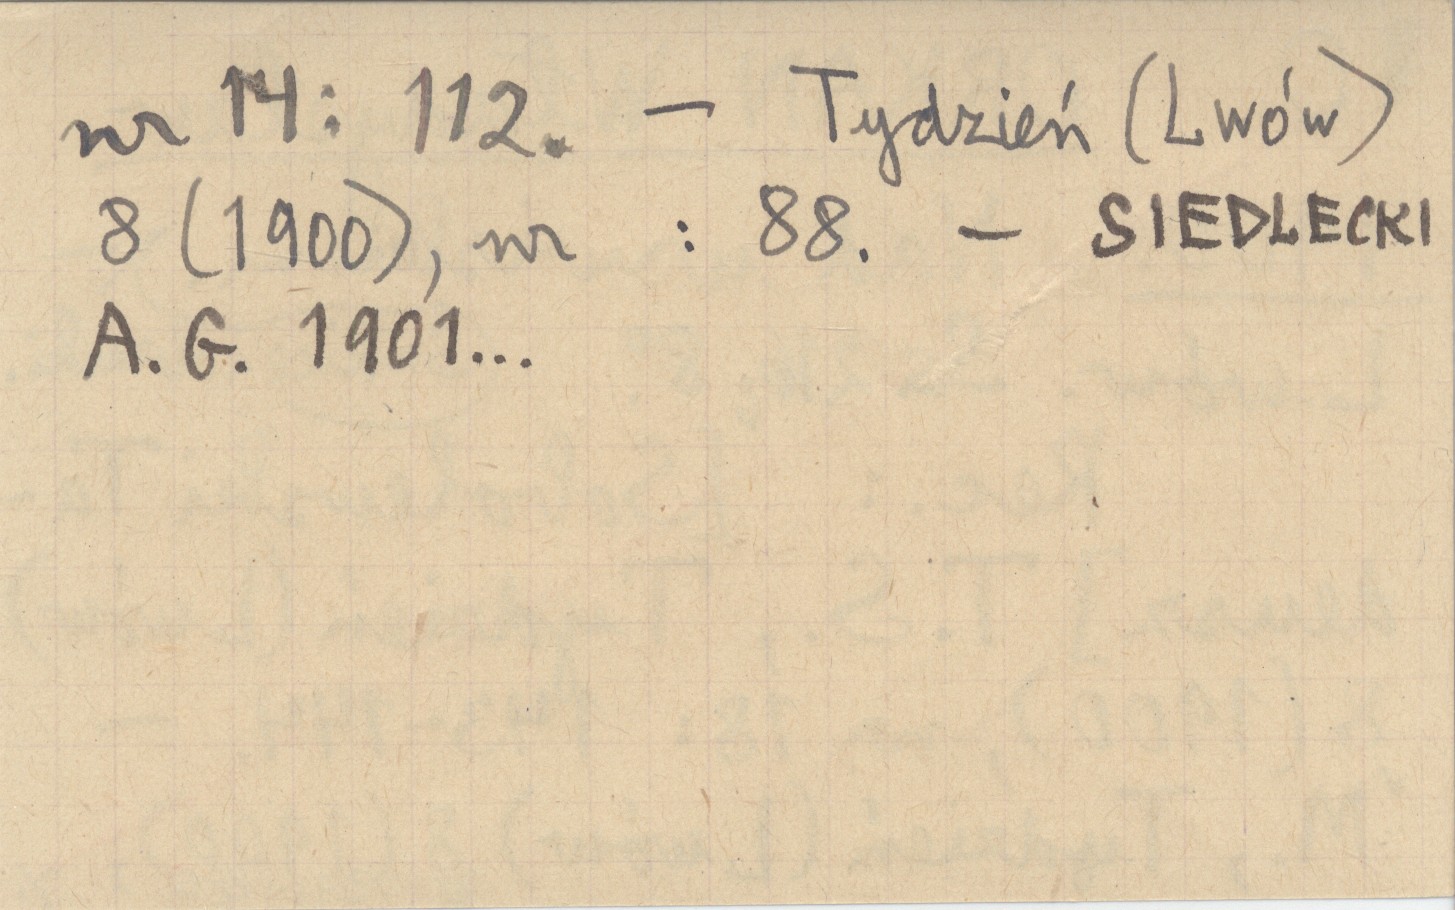 nr 14: 112. – Tydzień (Lwów)
8 (1900), nr : 88. – SIEDLECKI
A. G. 1901...